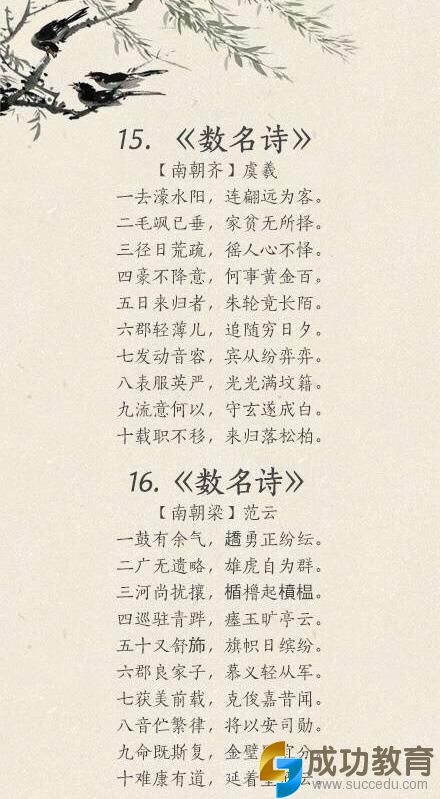 15.《数名诗》
【南朝齐】虞羲
一去濠水阳，连翩远为客。
二毛飒已垂，家贫无所择。
三径日荒疏，徭人心不怿。
四豪不降意，何事黄金百。
五日来归者，朱轮竞长陌。
六郡轻薄儿，追随穷日夕。
七发动音容，宾从纷弈弈。
八表服英严，光光满坟籍。
九流意何以，守玄遂成白。
十载职不移，来归落松柏。
16.《数名诗》
【南朝梁】范云
一鼓有余气，趫勇正纷纭。
二广无遗略，雄虎自为群。
三河尚扰攘，楯橹起槓榅。
四巡驻青跸，瘗玉旷亭云。
五十又舒斾，旗帜日缤纷。
六郡良家子，慕义轻从军。
七获美前载，克俊嘉昔闻。
八音伫繁律，将以安司勋。
九命既斯复，金璧 宜分
十难康有道，延着 云
成功教育
www.succedu.com